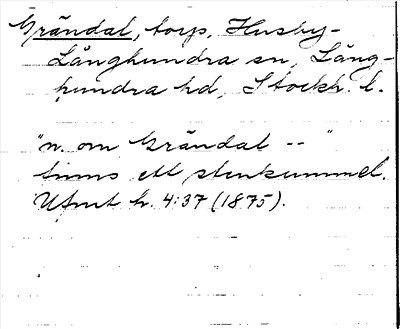 Grändal, torp, Husby-
Långhundra sn, Lång-
hundra hd, Stockh. l.
"n. om Grändal -- "
finns ett stenkummel.
Ufmt h. 4:37 (1875).